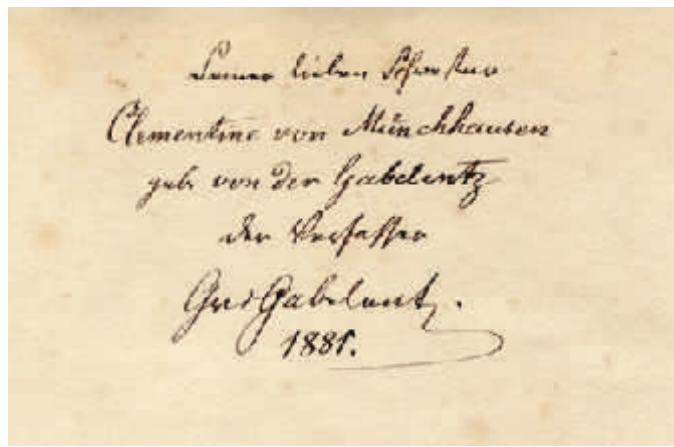 Seiner lieben Schwester
Clementine von Münchhausen
geb. von der Gabelentz
der Verfasser
GvdGabelentz.
1881.